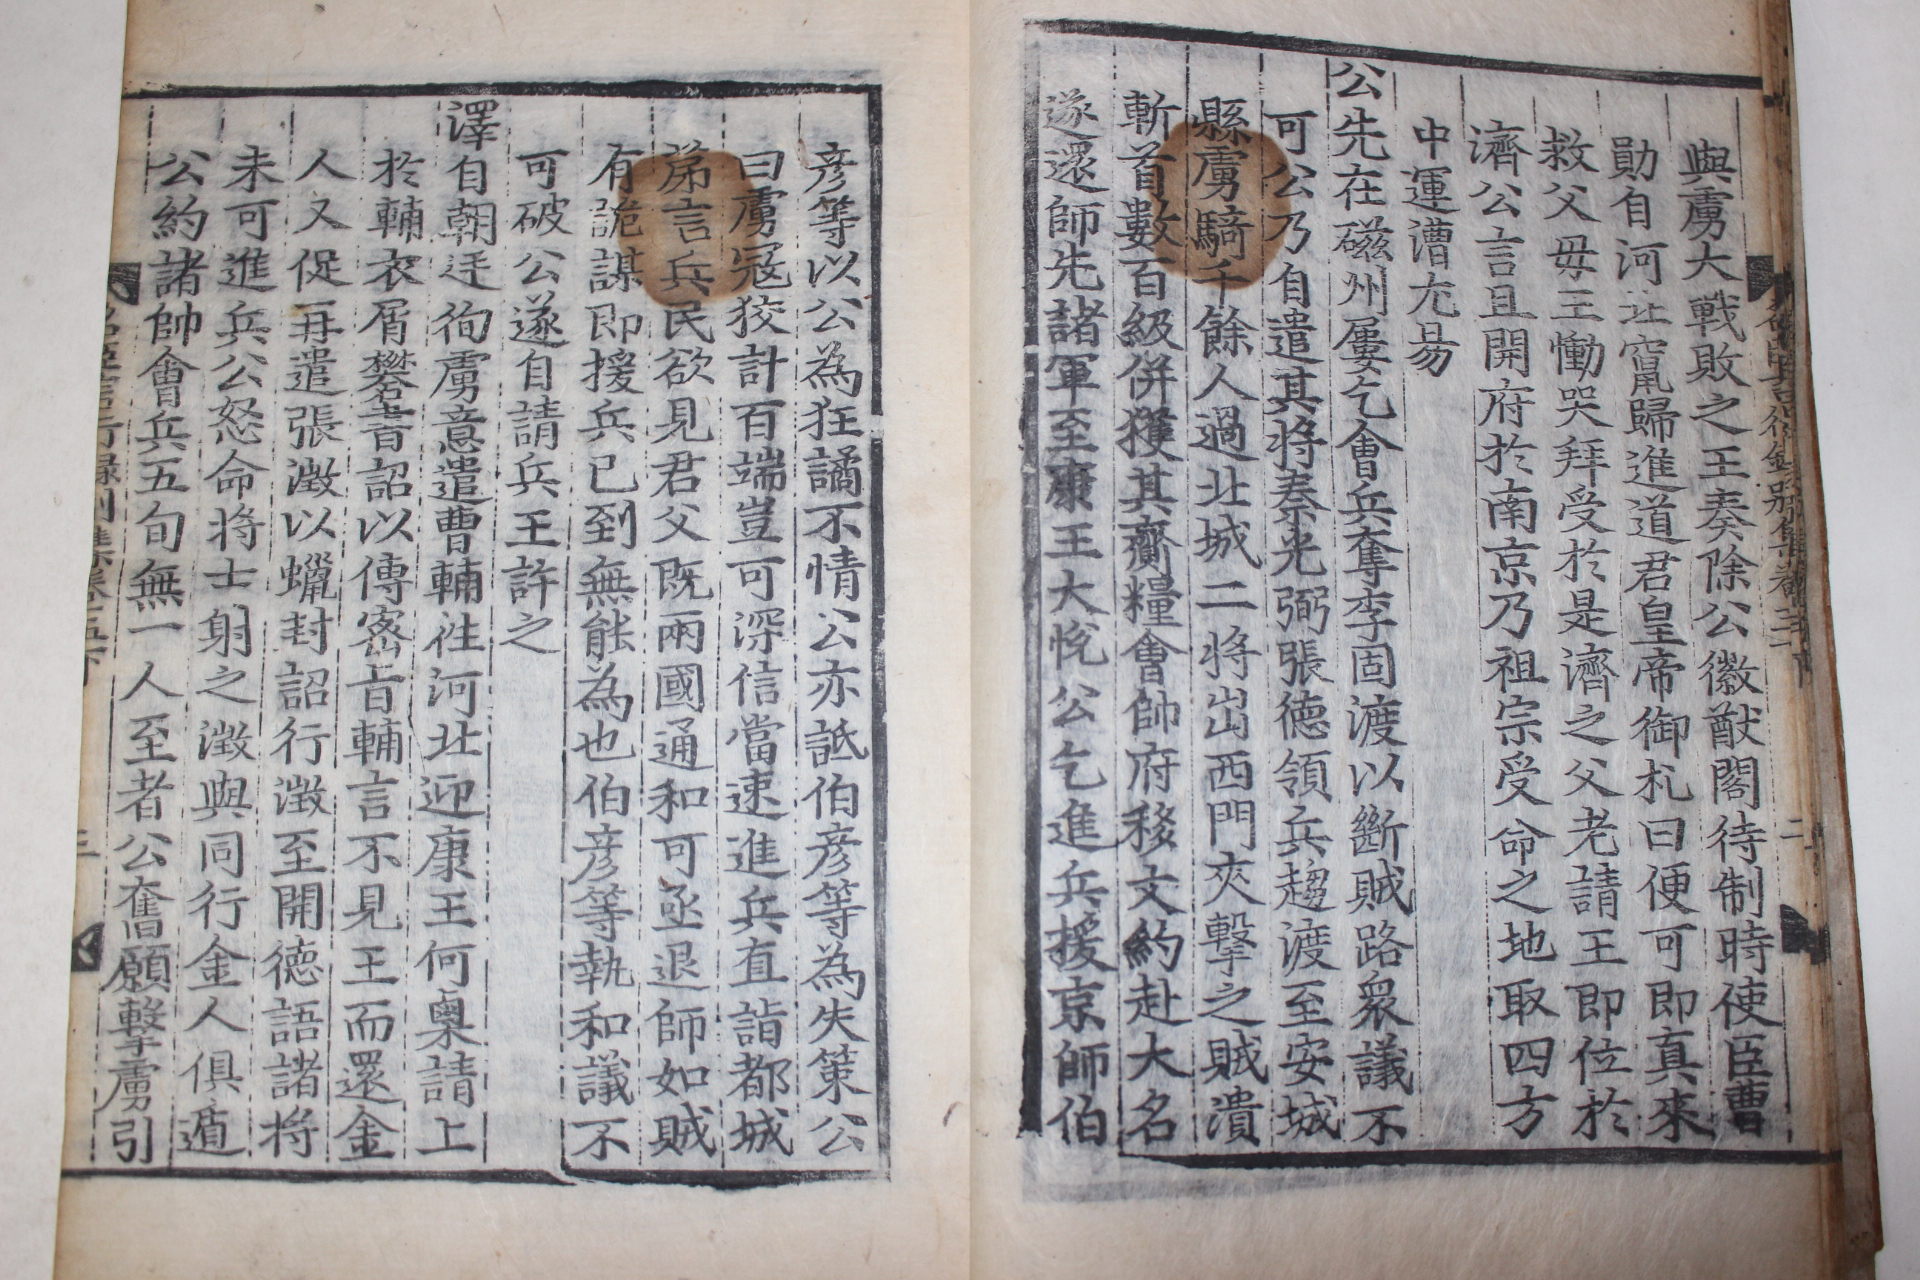 與虜大戰敗之王奏除公徽猷閣待制時使臣曹
勛自河北竄歸進道君皇帝御札曰便可即真來
救父母王慟哭拜受於是濟之父老請王即位於
濟公言且開府於南京乃祖宗受命之地取四方
中運漕尤易
公先在磁州屢乞會兵奪李固渡以斷賊路衆議不
可公乃自遣其將秦光弼張德領兵趨渡至安城
縣虜騎千餘人過北城二將出西門夾擊之賊潰
斬首數百級併獲其齎糧會帥府移文約赴大名
遂還師先諸軍至康王大悅公乞進兵援京師伯
彦等以公為狂譎不情公亦詆伯彦等為失策公
曰虜冦狡計百端豈可深信當速進兵直詣都城
第言兵民欲見君父既兩國通和可亟退師如賊
有詭謀即援兵已到無能為也伯彦等執和議不
可破公遂自請兵王許之
澤自朝廷徇虜意遣曹輔徃河北迎康王何㮚請上
於輔衣屑礬書詔以傳宻旨輔言不見王而還金
人又促再遣張澂以蠟封詔行澂至開德語諸將
未可進兵公怒命將士射之澂與同行金人俱遁
公約諸帥會兵五旬無一人至者公奮願擊虜引
名臣言行録別集卷三下
三